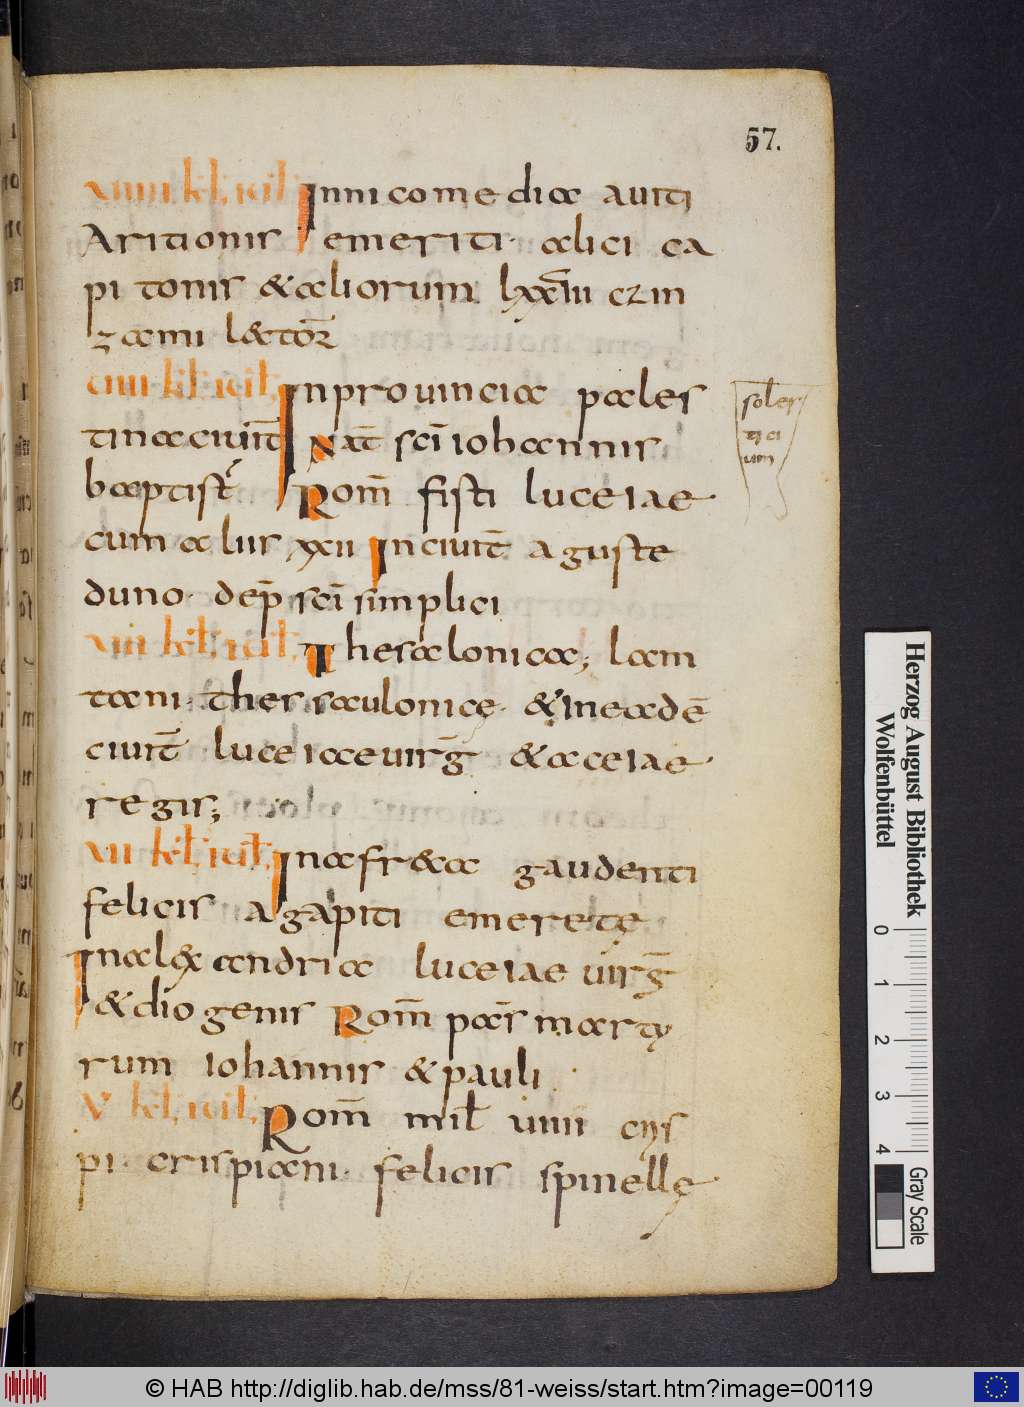 57.
VIIII kł; iuł; In nicomedia auiti
Aritionis emeriti· alici ca
pitonis & aliorum lxxiii czin
zami lectoꝝ
VIII kł; iuł; In prouincia pales
tina ciuit̄ Nat̄ sc̄i iohannis
baptist̄ Rom̄ fisti luceiae
cum aliis xxii In ciuit̄ aguste
duno· dep̄ sc̄i simplici
VII kł; iuł; Thesalonica; lam
tani· thessaulonicę· & in eadē
ciuit̄ luceiae uirḡ & aceiae·
regis;
VI kł; iuł; In afr&a gaudenti
felicis agapiti emeretę
In alexandria luceiae uirḡ
& diogenis Rom̄ pas̄ marty
rum iohannis & pauli
V kł; iuł; Rom̄ mił uiiii cris
pi· crispiani· felicis spinellę
solers
ti ci
um
Herzog August Bibliothek
Wolfenbüttel
0 1 2 3 4
Gray Scale
© HAB http://diglib.hab.de/mss/81-weiss/start.htm?image=00119